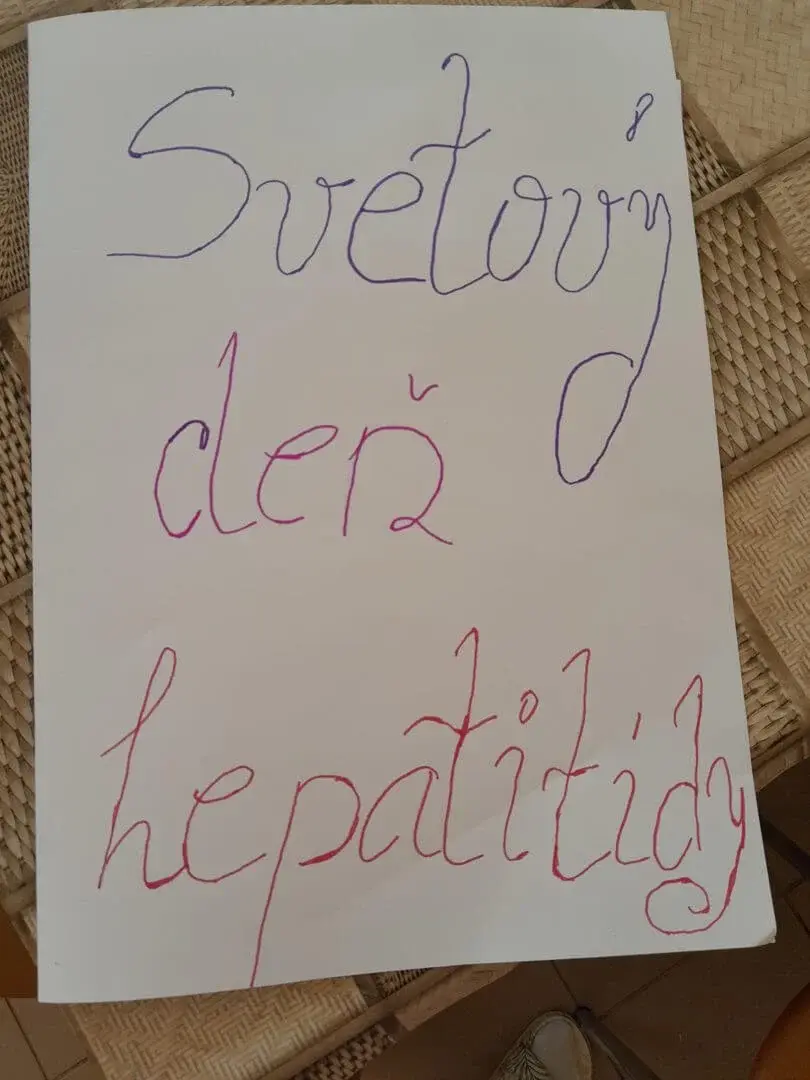 Svetový
deň
hepatitídy